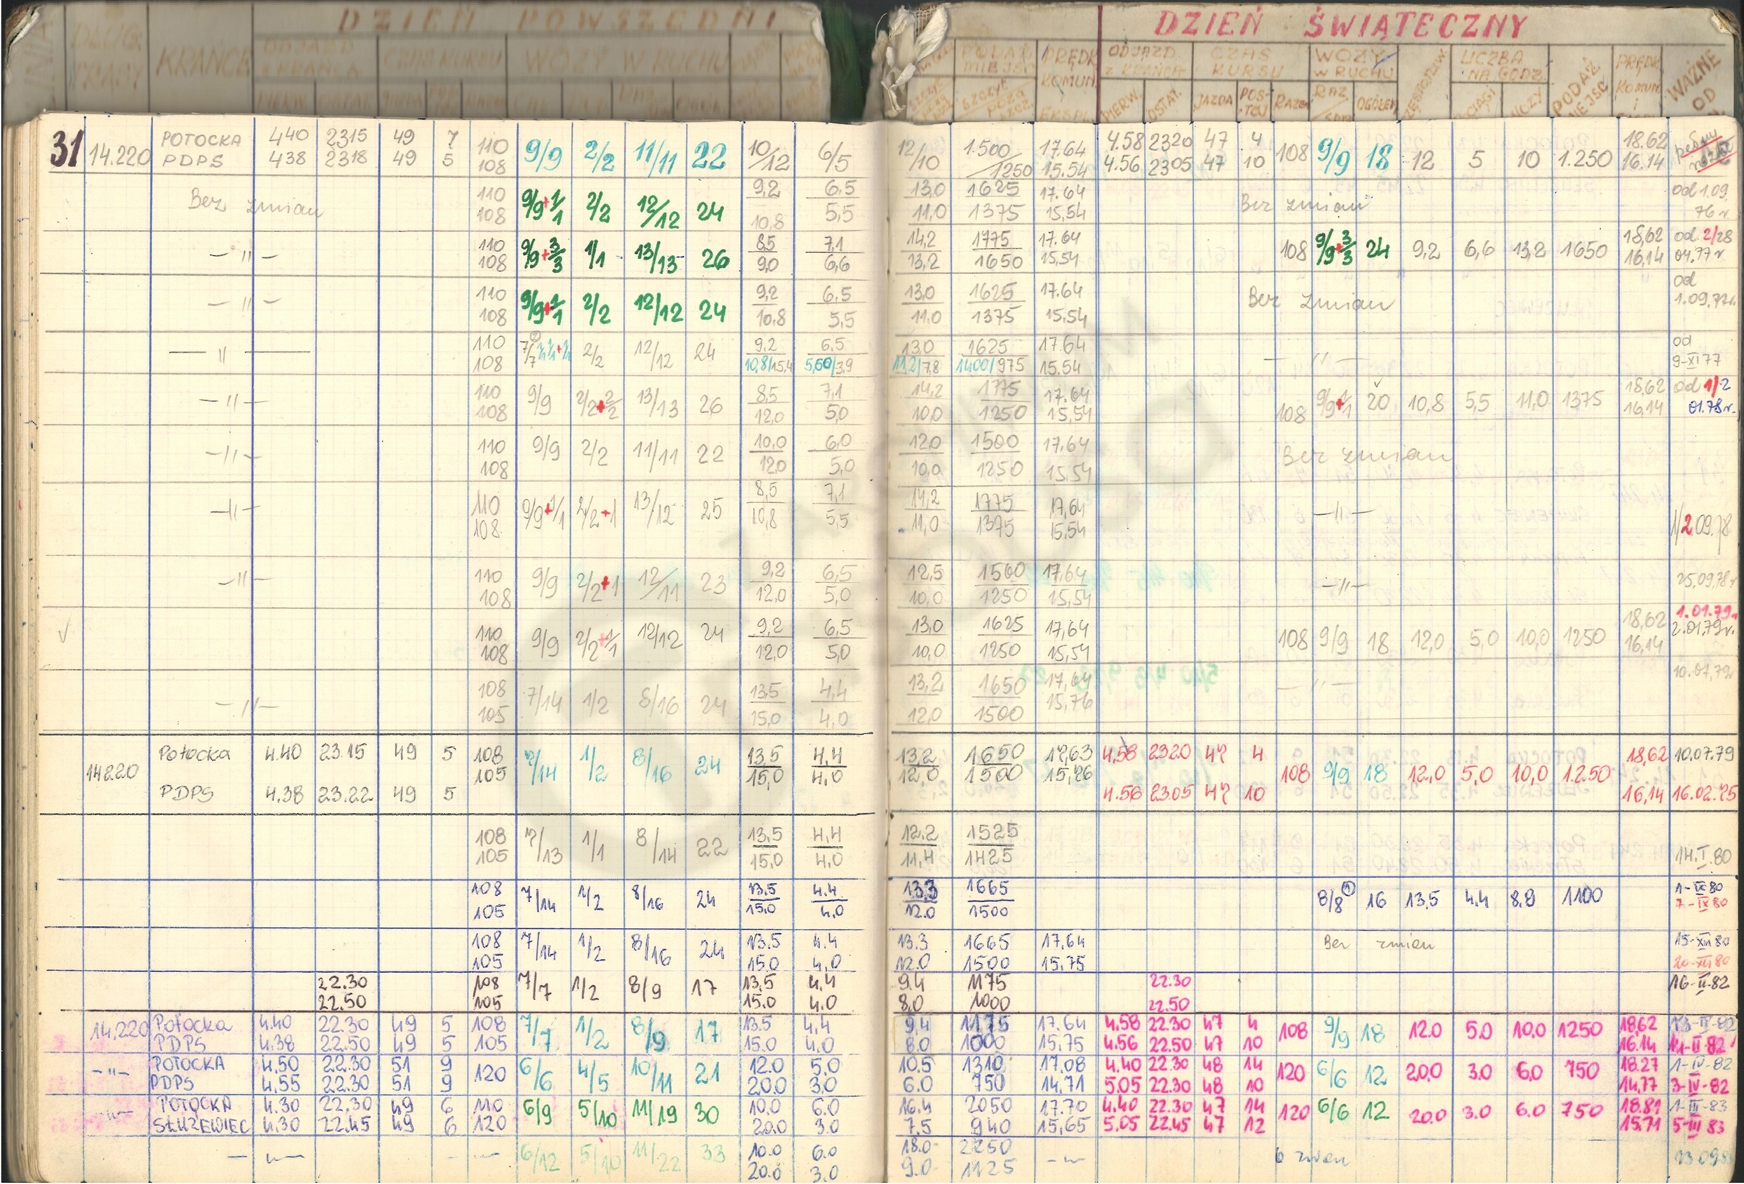 DZIEŃ POWSZEDNI DZIEŃ ŚWIĄTECZNY
KRAŃCE ODJAZD Z KRAŃCA WOZY W RUCHU PODAŻ MIEJSC PRĘDK. KOMUN. ODJAZD Z KRAŃCA CZAS KURSU WOZY W RUCHU LICZBA NA GODZ. PODAŻ MIEJSC PRĘDK KOMUN WAŻNE OD
EKSPL. PIERW. OSTAT. JAZDA POSTÓJ OGÓŁEM
31 14.220 POTOCKA 440 2315 49 7 110 9/9 2/2 11/11 22 10/12 6/5 12/10 1500 17.64 4.58 2320 47 4 108 9/9 18 12 5 10 1.250 18.62
PDPS 438 2318 49 5 108 1250 15.54 4.56 2305 47 10 16.14
Bez zmian 110 9/9+1/1 2/2 12/12 24 9,2 6.5 13,0 1625 17.64 Bez zmian od 1.09.
108 10,8 5,5 11,0 1375 15,54 76 r.
-"- 110 9/9+3/3 1/1 13/13 26 8,5 7,1 14,2 1775 17.64 108 9/9+3/3 24 9,2 6,6 13,2 1650 18,62 od 2/28
108 9,0 6,6 13,2 1650 15,54 16,14 04.77 r.
-"- 110 9/9+1/1 2/2 12/12 24 9,2 6.5 13,0 1625 17.64 Bez zmian od
108 10,8 5,5 11,0 1375 15,54 1.09,77r.
-"- 110 2/2 12/12 24 9,2 6,5 13,0 1625 17.64 -"- od
108 10,8/15,4 5,60/3,9 11,2/7,8 1400/975 15.54 9-XI 77
-"- 110 9/9 2/2+2/2 13/13 26 8,5 7,1 14,2 1775 17.64 108 9/9+1/1 20 10,8 5,5 11,0 1375 18,62 od 1/2
108 12,0 5,0 10,0 1250 15,54 16,14 01.78 r.
-"- 110 9/9 2/2 11/11 22 10,0 6,0 12,0 1500 17.64 Bez zmian
108 12,0 5,0 10,0 1250 15,54
-"- 110 9/9+1/1 2/2+1 13/12 25 8,5 7,1 14,2 1775 17,64 -"- 1/2.09.78
108 10,8 5,5 11,0 1375 15,54
-"- 110 9/9 2/2+1 12/11 23 9,2 6,5 12,5 1560 17,64 -"- 25,09,78 r
108 12,0 5,0 10,0 1250 15,54
✓ 110 9/9 2/2+1/1 12/12 24 9,2 6,5 13,0 1625 17,64 108 9/9 18 12,0 5,0 10,0 1250 18,62 1.01.79 r.
108 12,0 5,0 10,0 1250 15,54 16,14 2.01.79 r.
-"- 108 7/14 1/2 8/16 24 13,5 4,4 13,2 1650 17,64 -"- 10.07,79r
105 15,0 4,0 12,0 1500 15,76
14220 Potocka 4.40 23.15 49 5 108 7/14 1/2 8/16 24 13.5 4.4 13,2 1650 17,63 4,58 2320 47 4 108 9/9 18 12,0 5,0 10,0 1.250 18,62 10.07.79
PDPS 4.38 23.22 49 5 105 15,0 4,0 12,0 1500 15,26 4.56 2305 47 10 16,14 16.02.75
108 7/13 1/1 8/14 22 13,5 4,4 12.2 1525
105 15,0 4,0 11,4 1425 14.I.80
108 7/14 1/2 8/16 24 13.5 4.4 13.3 1665 8/8 16 13,5 4.4 8.8 1100 1-IX 80
105 15.0 4.0 12.0 1500 7-IX 80
108 7/14 1/2 8/16 24 13.5 4.4 13.3 1665 17,64 Bez zmian 15-XII 80
105 15.0 4,0 12.0 1500 15.75 20-XII 80
22.30 108 7/7 1/2 8/9 17 13,5 4.4 9,4 1175 22.30 16-II-82
22.50 105 15.0 4.0 8.0 1000 22.50
14.220 Potocka 4.40 22.30 49 5 108 7/7 1/2 8/9 17 13.5 4.4 9.4 1175 17.64 4.58 22.30 47 4 108 9/9 18 12.0 5.0 10,0 1250 18.62
PDPS 4.38 22.50 49 5 105 15.0 4.0 8.0 1000 15,75 4.56 22.50 47 10 16.14
-"- POTOCKA 4.50 22.30 51 9 120 6/6 4/5 10/11 21 12.0 5.0 10.5 1310 17.08 4.40 22.30 48 14 120 6/6 12 20.0 3.0 6.0 750 18.27 1-IV-82
PDPS 4.55 22.30 51 9 20.0 3.0 6.0 750 14.71 5.05 22.30 48 10 14,77 3-IV-82
-"- POTOCKA 4.30 22.30 49 6 110 6/9 5/10 11/19 30 10.0 6.0 16.4 2050 17.70 4.40 22.30 47 14 120 6/6 12 20.0 3.0 6.0 750 18.81 1-III-83
SŁUŻEWIEC 4.30 22.45 49 6 120 20.0 3.0 7.5 940 15,65 5.05 22.45 47 12 15.71 5-III 83
-"- -"- 6/12 5/10 11/22 33 10.0 6.0 18.0 2250 -"- b zmian
20.0 3.0 9.0 1125